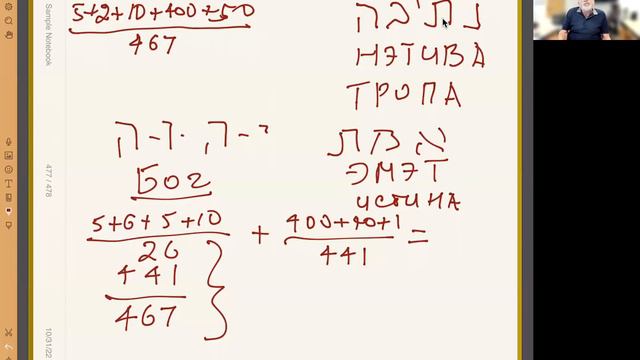 Sample Notebook
477 / 478
10/31/22
5+2+10+400+50
467
נתיבה
НЭТИВА
ТРОПА
י-ה-ו-ה
Бог
אמת
ЭМЭТ
ИСТИНА
5+6+5+10 + 400+40+1 =
26
441
441
467